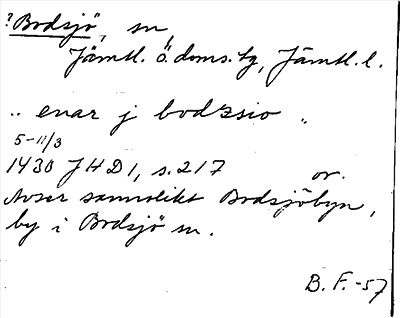 ? Bodsjö, sn,
Jämtl. ö. doms. tg, Jämtl. l.
.. enar j bodzsio ..
5-11/3
1430 JHD 1, s. 217 or.
Avser sannolikt Bodsjöbyn,
by i Bodsjö sn.
B. F. -57